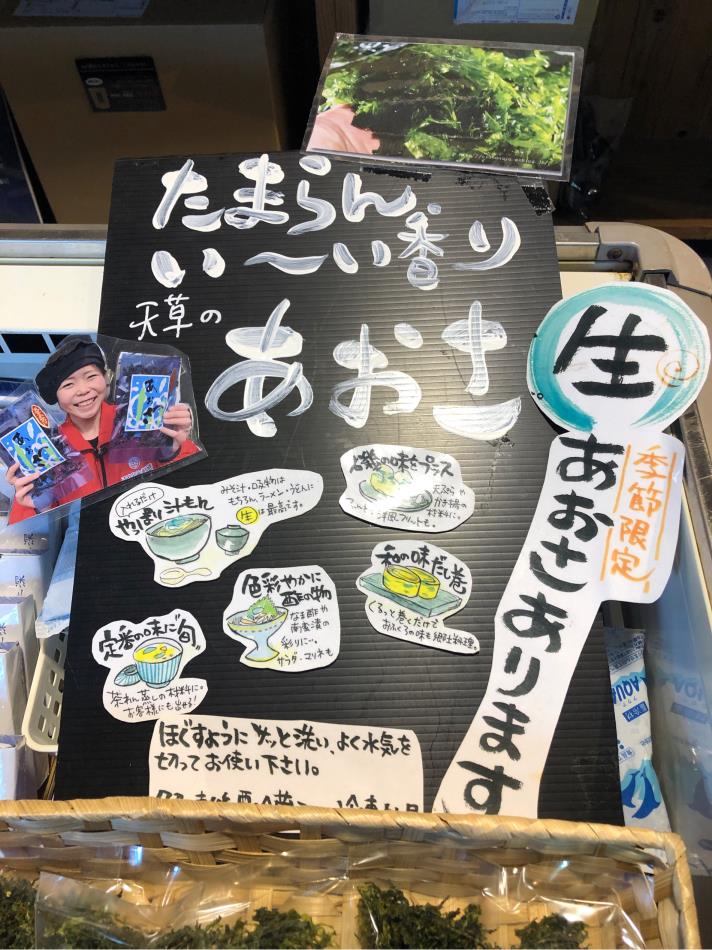 たまらん
い〜い香り
天草の
あおさ
生
季節限定
あおさあります
入れるだけ
やっぱり汁もん
みそ汁・吸物は
もちろん、ラーメン・うどんに
生は最高です。
磯の味をプラス
天ぷらや
かき揚の
材料に。
洋風フリットも。
色彩やかに
酢の物
なる酢や
南蛮漬の
彩りに…
サラダ・マリネも
和の味だし巻
くるっと巻くだけで
おふくろの味も郷土料理。
定番の味に「旬」
茶わん蒸しの材料に。
お客様にも出せる!
ほぐすようにサッと洗い、よく水気を
切ってお使い下さい。
AQUA